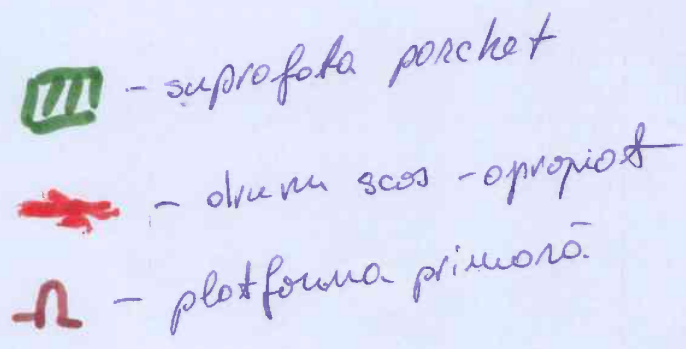 - suprafata parchet
- drum scos - apropiat
- platforma primară